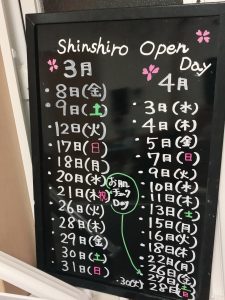 Shinshiro Open Day
3月
・8日(金)
・9日(土)
・12日(火)
・17日(日)
・18日(月)
・20日(水)
・21日(木)
・26日(火)
・28日(木)
・29日(金)
・30日(土)
・31日(日)
お肌
チェック
Day
4月
・3日(水)
・4日(木)
・5日(金)
・7日(日)
・9日(火)
・10日(水)
・11日(木)
・13日(土)
・15日(月)
・16日(火)
・18日(木)
・22日(月)
・26日(金)
・27日(土)
・28日(日)